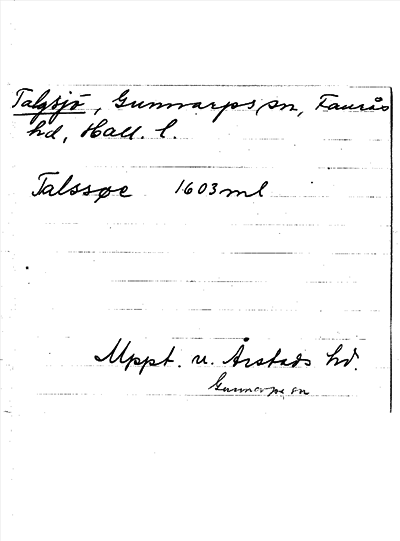 Talgsjö, Gunnarps sn, Faurås
hd, Hall. l.
Talssøe 1603 ml
Uppt. u. Årstads hd.
Gunnarps sn